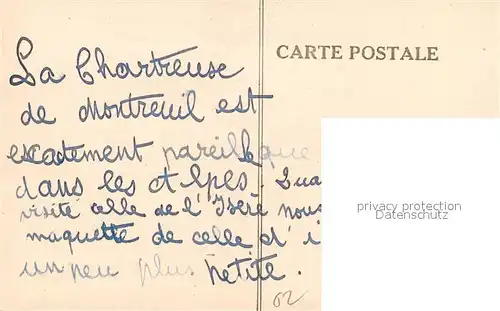 CARTE POSTALE
La Chartreuse
de Montreuil est
exactement pareille que
dans les Alpes. Qua
visité celle de l'Isère nous
maquette de celle d'i
un peu plus petite.
privacy protection
Datenschutz
62